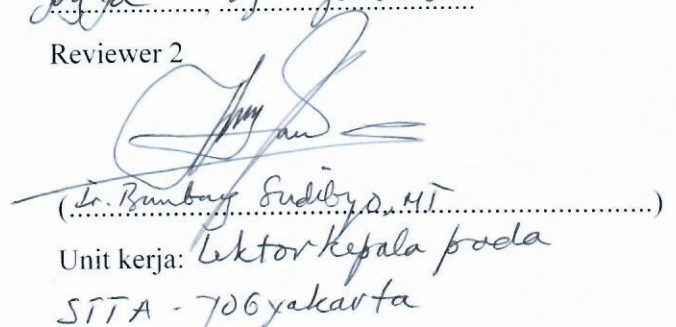 Reviewer 2
(Ir. Bambang Sudibyo, MT)
Unit kerja: Lektor Kepala pada
STTA - YOGyakarta